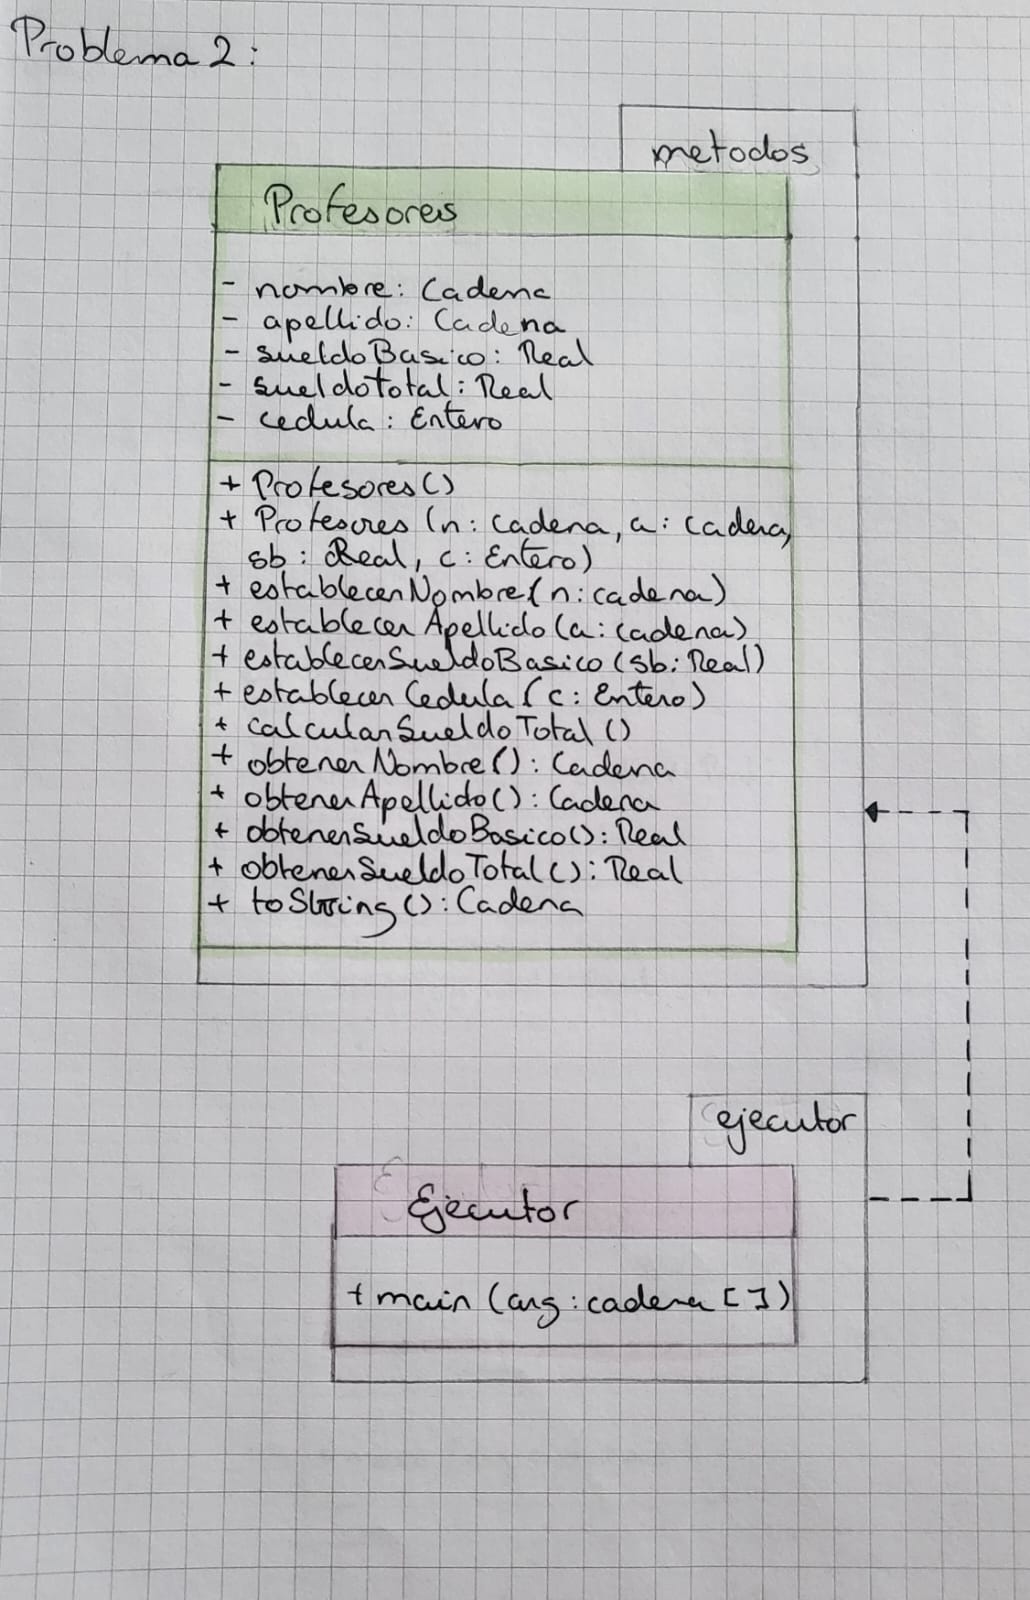 Problema 2:
metodos
Profesores
- nombre: Cadena
- apellido: Cadena
- sueldoBasico: Real
- sueldoTotal: Real
- cedula: Entero
+ Profesores()
+ Profesores (n: cadena, a: cadena,
sb: Real, c: Entero)
+ establecerNombre(n:cadena)
+ establecerApellido(a:cadena)
+ establecerSueldoBasico(sb:Real)
+ establecerCedula(c:Entero)
+ calcularSueldoTotal()
+ obtenerNombre(): Cadena
+ obtenerApellido(): Cadena
+ obtenerSueldoBasico(): Real
+ obtenerSueldoTotal(): Real
+ toString(): Cadena
ejecutor
Ejecutor
+ main (arg: cadena [])